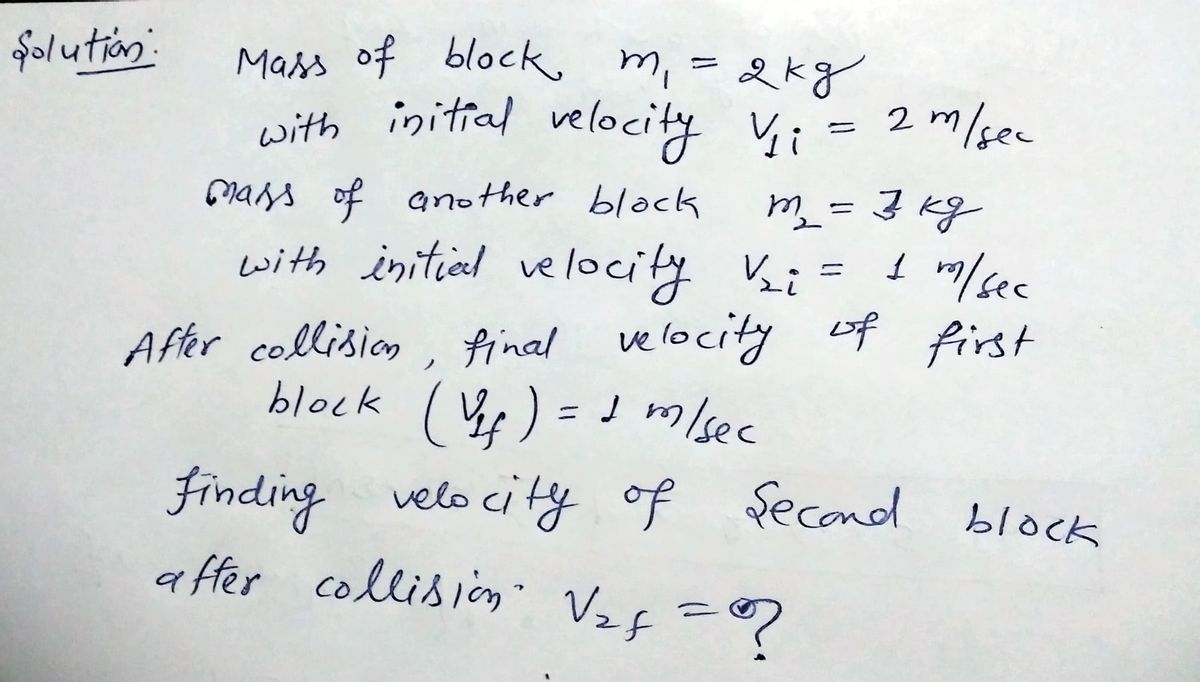 Solution:
Mass of block m₁ = 2kg
with initial velocity V₁i = 2 m/sec
Mass of another block m₂ = 3 kg
with initial velocity V₂i = 1 m/sec
After collision, final velocity of first
block (V₁f) = 1 m/sec
finding velocity of Second block
after collision. V₂f = ?